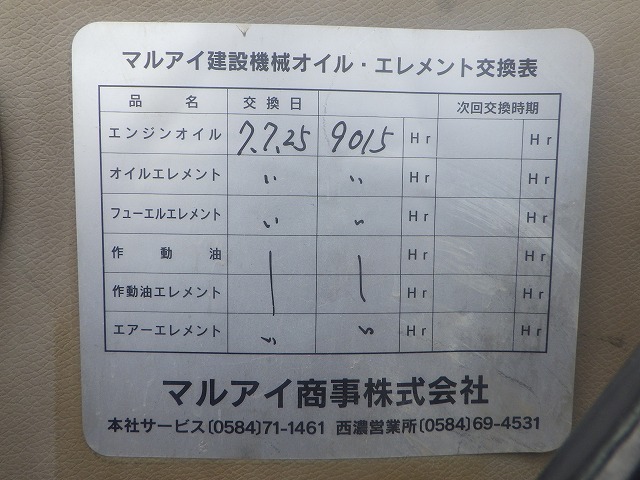 マルアイ建設機械オイル・エレメント交換表
品名 交換日 次回交換時期
エンジンオイル 7.7.25 9015 Hr Hr
オイルエレメント 〃 〃 Hr Hr
フューエルエレメント 〃 〃 Hr Hr
作動油 | | Hr Hr
作動油エレメント Hr Hr
エアーエレメント 〃 〃 Hr Hr
マルアイ商事株式会社
本社サービス〔0584〕71-1461 西濃営業所〔0584〕69-4531